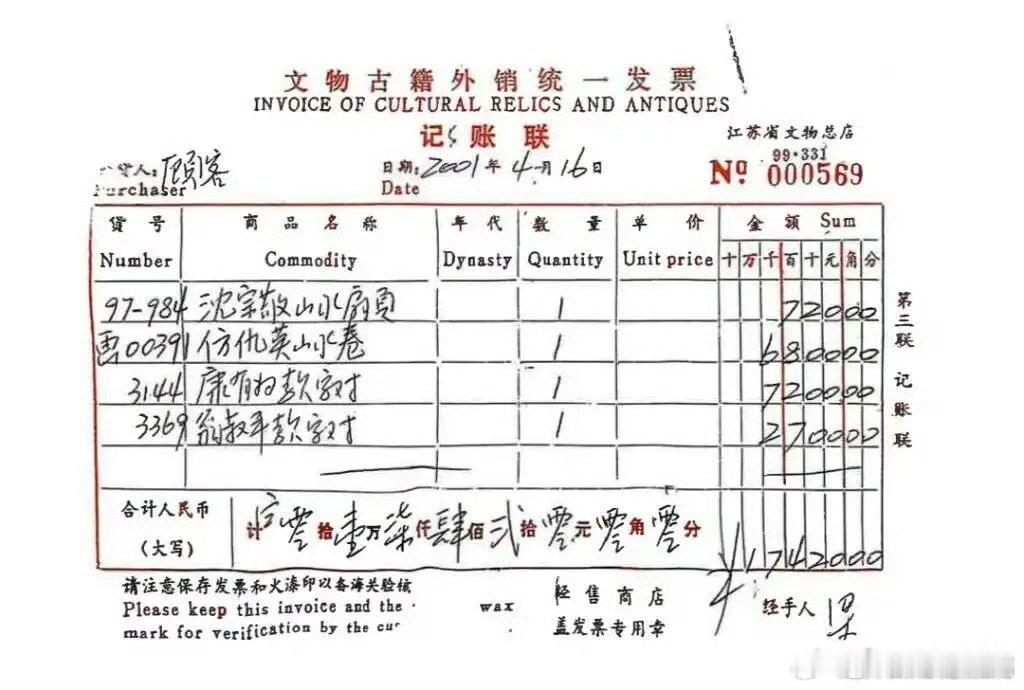 文物古籍外销统一发票
INVOICE OF CULTURAL RELICS AND ANTIQUES
记账联
江苏省文物总店
货人：顾客 日期：2001年4月16日 99·331
Purchaser Date Nº 000569
货号 商品名称 年代 数量 单价 金额 Sum
Number Commodity Dynasty Quantity Unit price 十万千百十元角分
97-984 沈宗敬山水扇页 1 72000
画00391 仿仇英山水卷 1 680000
3144 康有为款字对 1 720000
3369 翁叔平款字对 1 270000
合计人民币
（大写）
计 零拾壹万柒仟肆佰贰拾零元零角零分 ¥1742000
请注意保存发票和火漆印以备海关验核
Please keep this invoice and the wax
mark for verification by the cu
经售商店
盖发票专用章
经手人
第三联 记账联